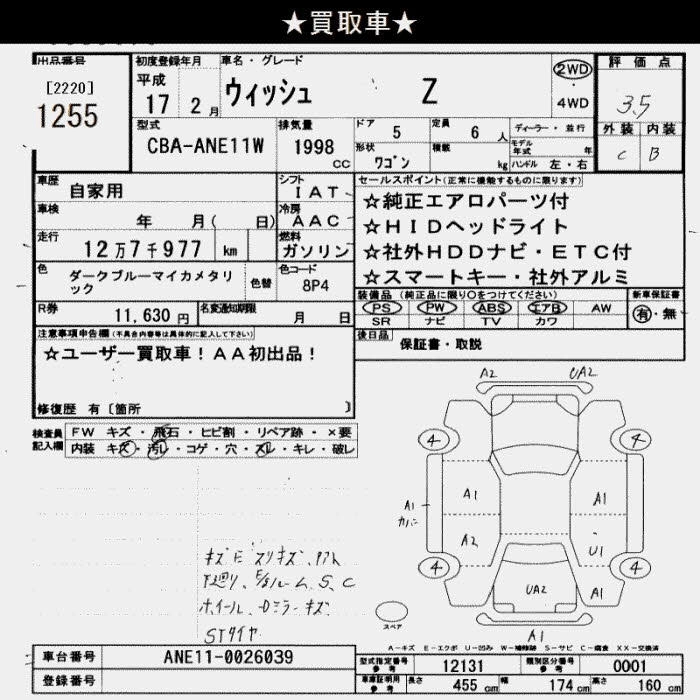 ★買取車★
出品番号
[2220]
1255
初度登録年月
平成
17 2月
車名・グレード
ウィッシュ Z
2WD
・
4WD
評価点
3.5
外装 内装
C B
型式
CBA-ANE11W
排気量
1998 cc
ドア 5
定員 6 人
ディーラー・並行
形状 ワゴン
積載 kg
モデル年式 年
ハンドル 左・右
車歴 自家用
シフト IAT
車検 年 月( 日)
冷房 AAC
走行 12万7千977 km
燃料 ガソリン
色 ダークブルーマイカメタリック
色替
色コード 8P4
R券 11,630 円
名変通知期限 月 日
セールスポイント(正常に機能するものに限ります)
☆純正エアロパーツ付
☆HIDヘッドライト
☆社外HDDナビ・ETC付
☆スマートキー・社外アルミ
装備品(純正品に限り○をつけてください)
PS PW ABS エアB AW
SR ナビ TV カワ
新車保証書
有・無
後日品 保証書・取説
注意事項申告欄(不具合内容等は具体的に記入して下さい)
☆ユーザー買取車!AA初出品!
修復歴 有〔箇所 〕
検査員記入欄
FW キズ・飛石・ヒビ割・リペア跡・×要
内装 キズ・汚レ・コゲ・穴・スレ・キレ・破レ
A2 UA2
4 4
A1 A1
A1
カバー
A2 U1
4 4
UA2 A1
A1
スペア
下廻り、
S、C
ホイール・Dミラーキズ
STタイヤ
A-キズ E-エクボ U-凹み W-補修跡 S-サビ C-腐食 XX-交換済
車台番号 ANE11-0026039
登録番号
型式指定番号 参考 12131
類別区分番号 参考 0001
車庫証明用 参考 長さ 455 cm 幅 174 cm 高さ 160 cm